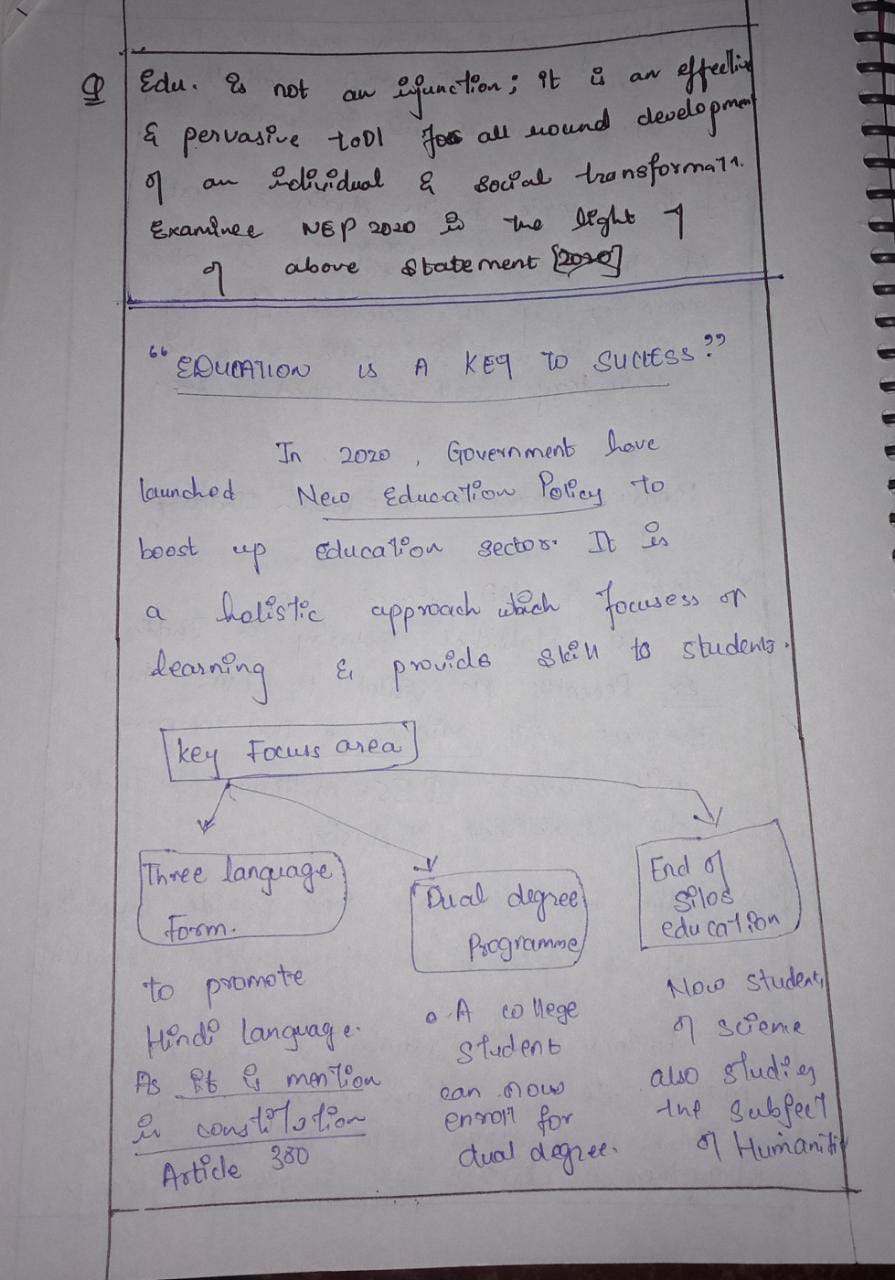 Q Edu. is not an injunction; it is an effective
& pervasive tool for all round development
of an individual & social transformatn.
Examinee NEP 2020 in the light of
of above statement [2020]
"EDUCATION IS A KEY TO SUCCESS"
In 2020, Government have
launched New Education Policy to
boost up education sector. It is
a holistic approach which focusess on
learning & provide skill to students.
Key Focus area
Three language
Form.
to promote
Hindi language.
As it is mention
in constitution
Article 380
Dual degree
Programme
o A college
student
can now
enroll for
dual degree.
End of
silos
education
Now student
of science
also studies
the subject
of Humaniti